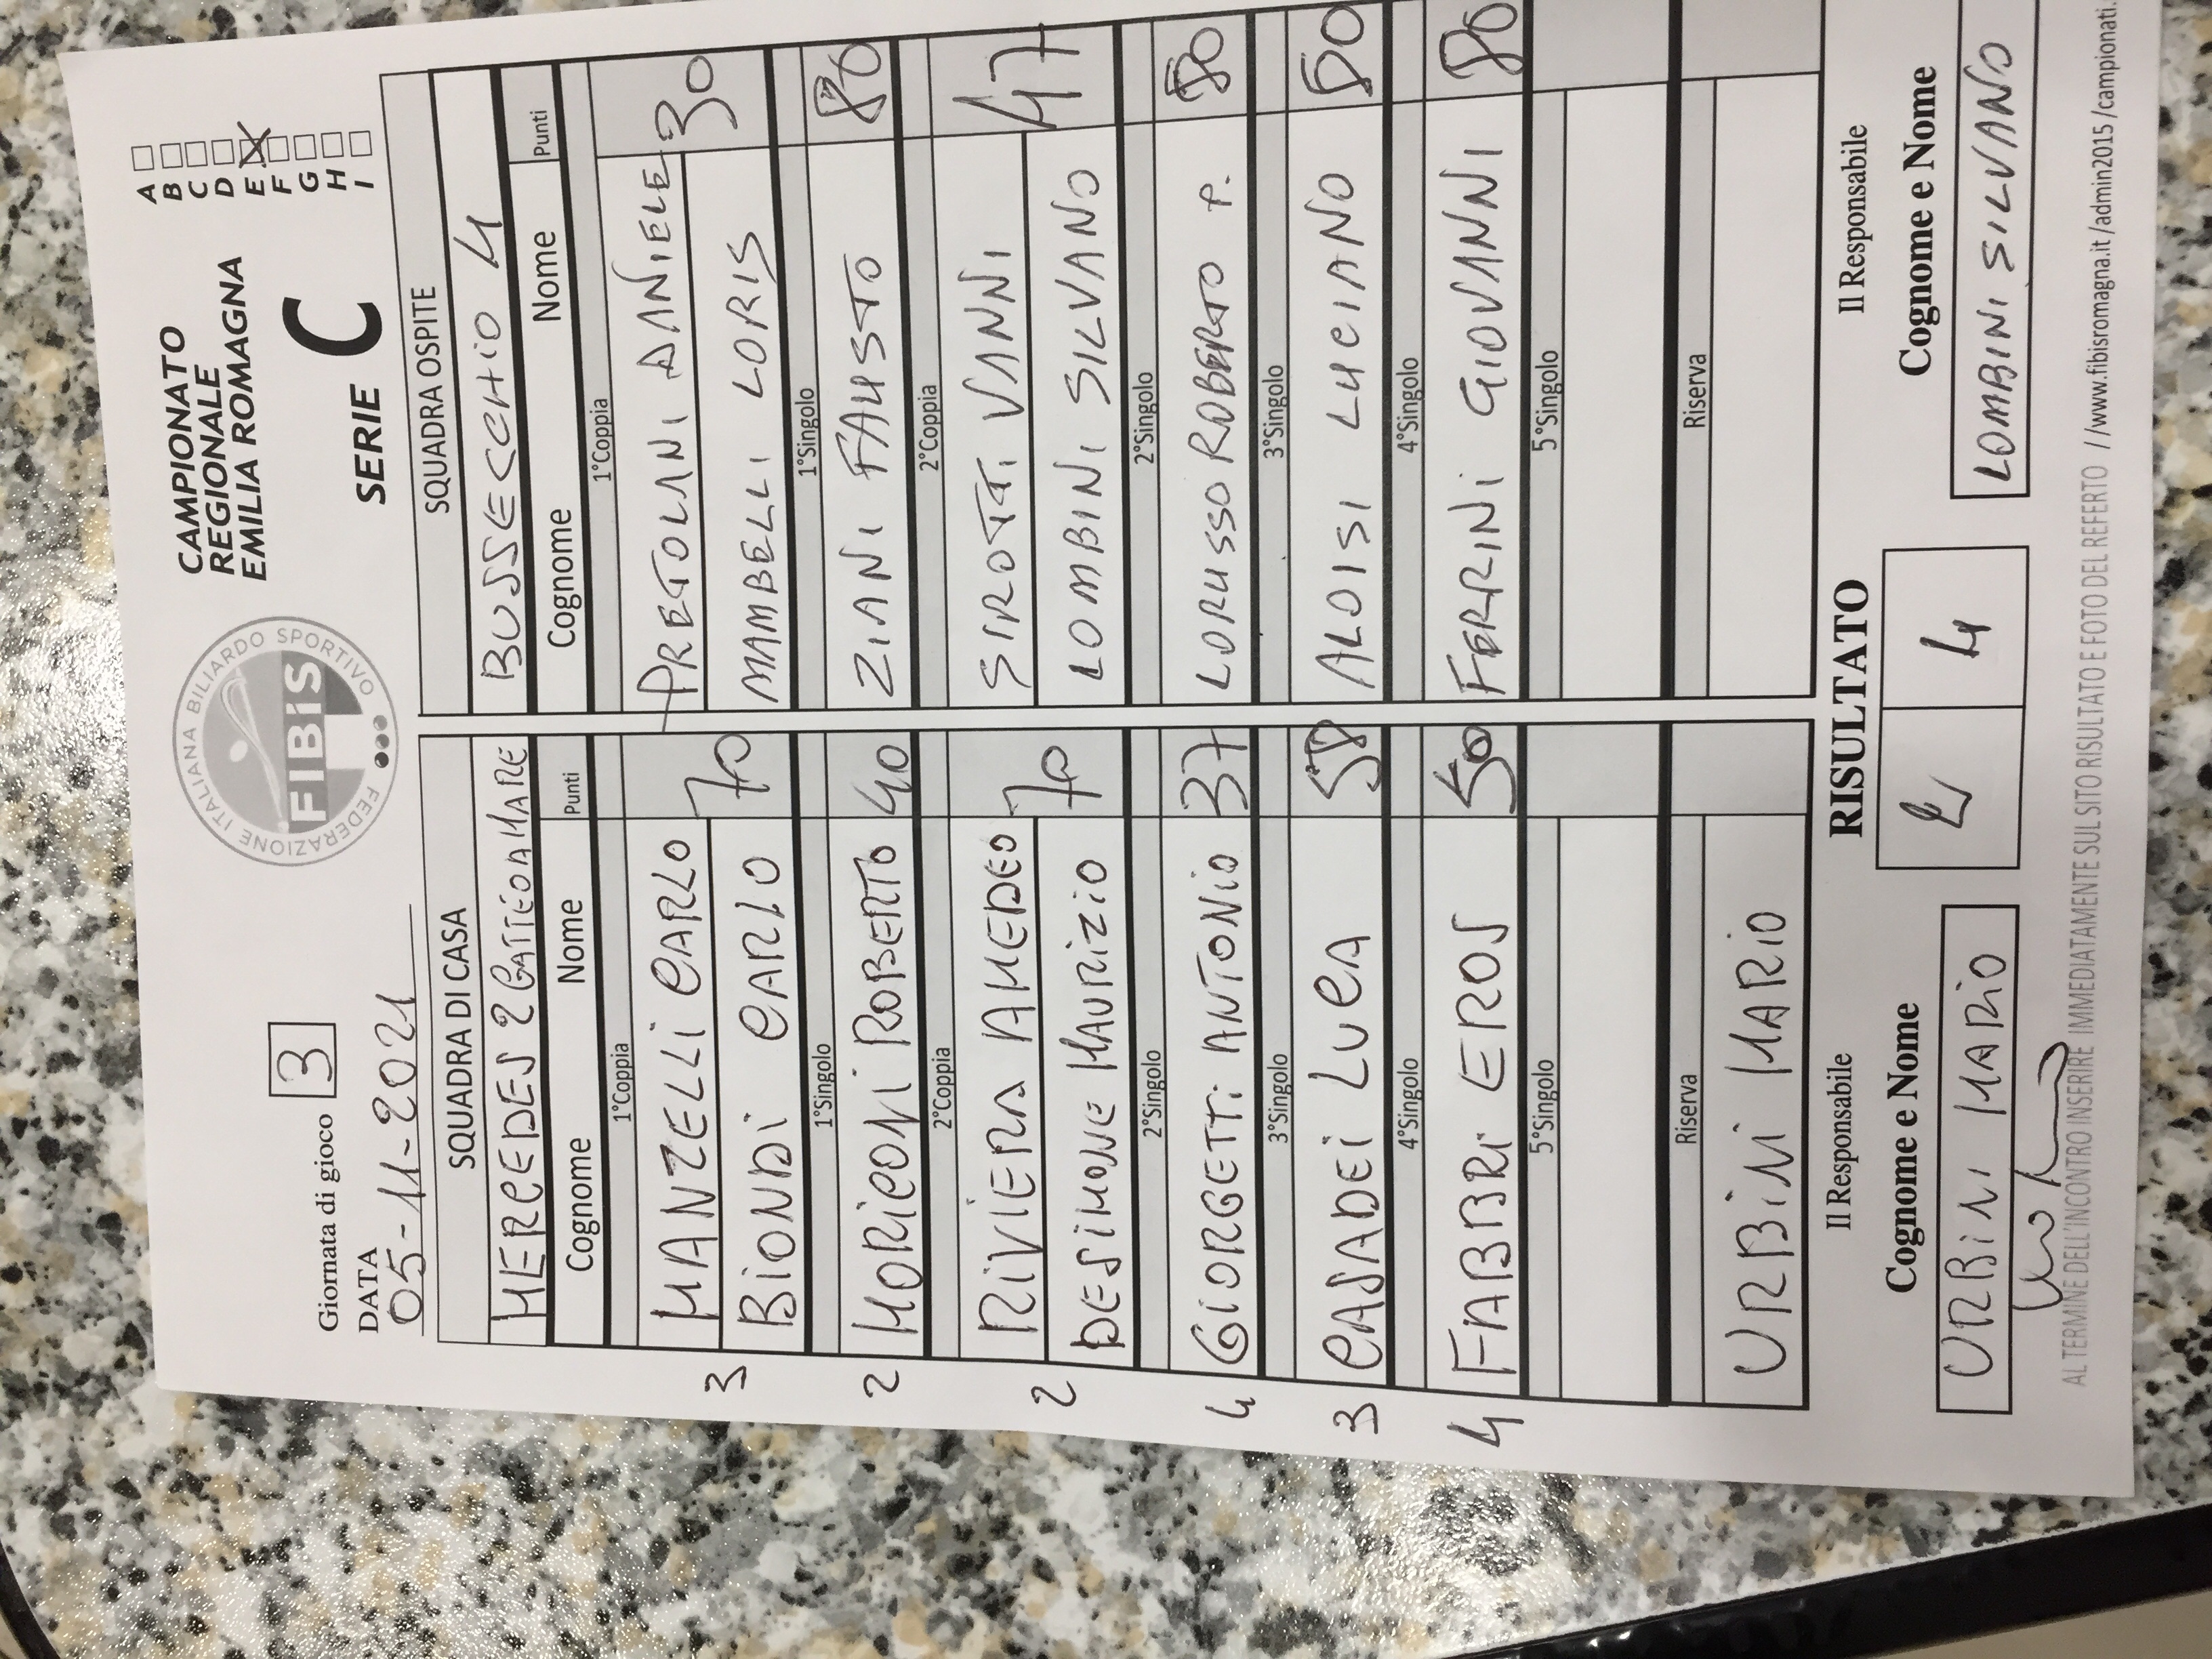 Giornata di gioco 3
DATA
05-11-2021
FEDERAZIONE ITALIANA BILIARDO SPORTIVO
FIBiS
CAMPIONATO
REGIONALE
EMILIA ROMAGNA
SERIE C
A
B
C
D
E X
F
G
H
I
SQUADRA DI CASA
MERCEDES 2 GATTEO A MARE
Cognome Nome Punti
1°Coppia
3 MANZELLI CARLO 70
BIONDI CARLO
1°Singolo
2 MORICONI ROBERTO 40
2°Coppia
2 RIVIERA AMEDEO 70
DESIMONE MAURIZIO
2°Singolo
4 GIORGETTI ANTONIO 37
3°Singolo
3 CASADEI LUCA 58
4°Singolo
4 FABBRI EROS 50
5°Singolo
Riserva
URBINI MARIO
SQUADRA OSPITE
BUSSECCHIO 4
Cognome Nome Punti
1°Coppia
PRETOLANI DANIELE 30
MAMBELLI LORIS
1°Singolo
ZIANI FAUSTO 80
2°Coppia
SIROTTI VANNI 47
LOMBINI SILVANO
2°Singolo
LORUSSO ROBERTO P. 80
3°Singolo
ALOISI LUCIANO 80
4°Singolo
FERRINI GIOVANNI 80
5°Singolo
Riserva
Il Responsabile
Cognome e Nome
URBINI MARIO
RISULTATO
2 4
Il Responsabile
Cognome e Nome
LOMBINI SILVANO
AL TERMINE DELL'INCONTRO INSERIRE IMMEDIATAMENTE SUL SITO RISULTATO E FOTO DEL REFERTO //www.fibisromagna.it /admin2015 /campionati.